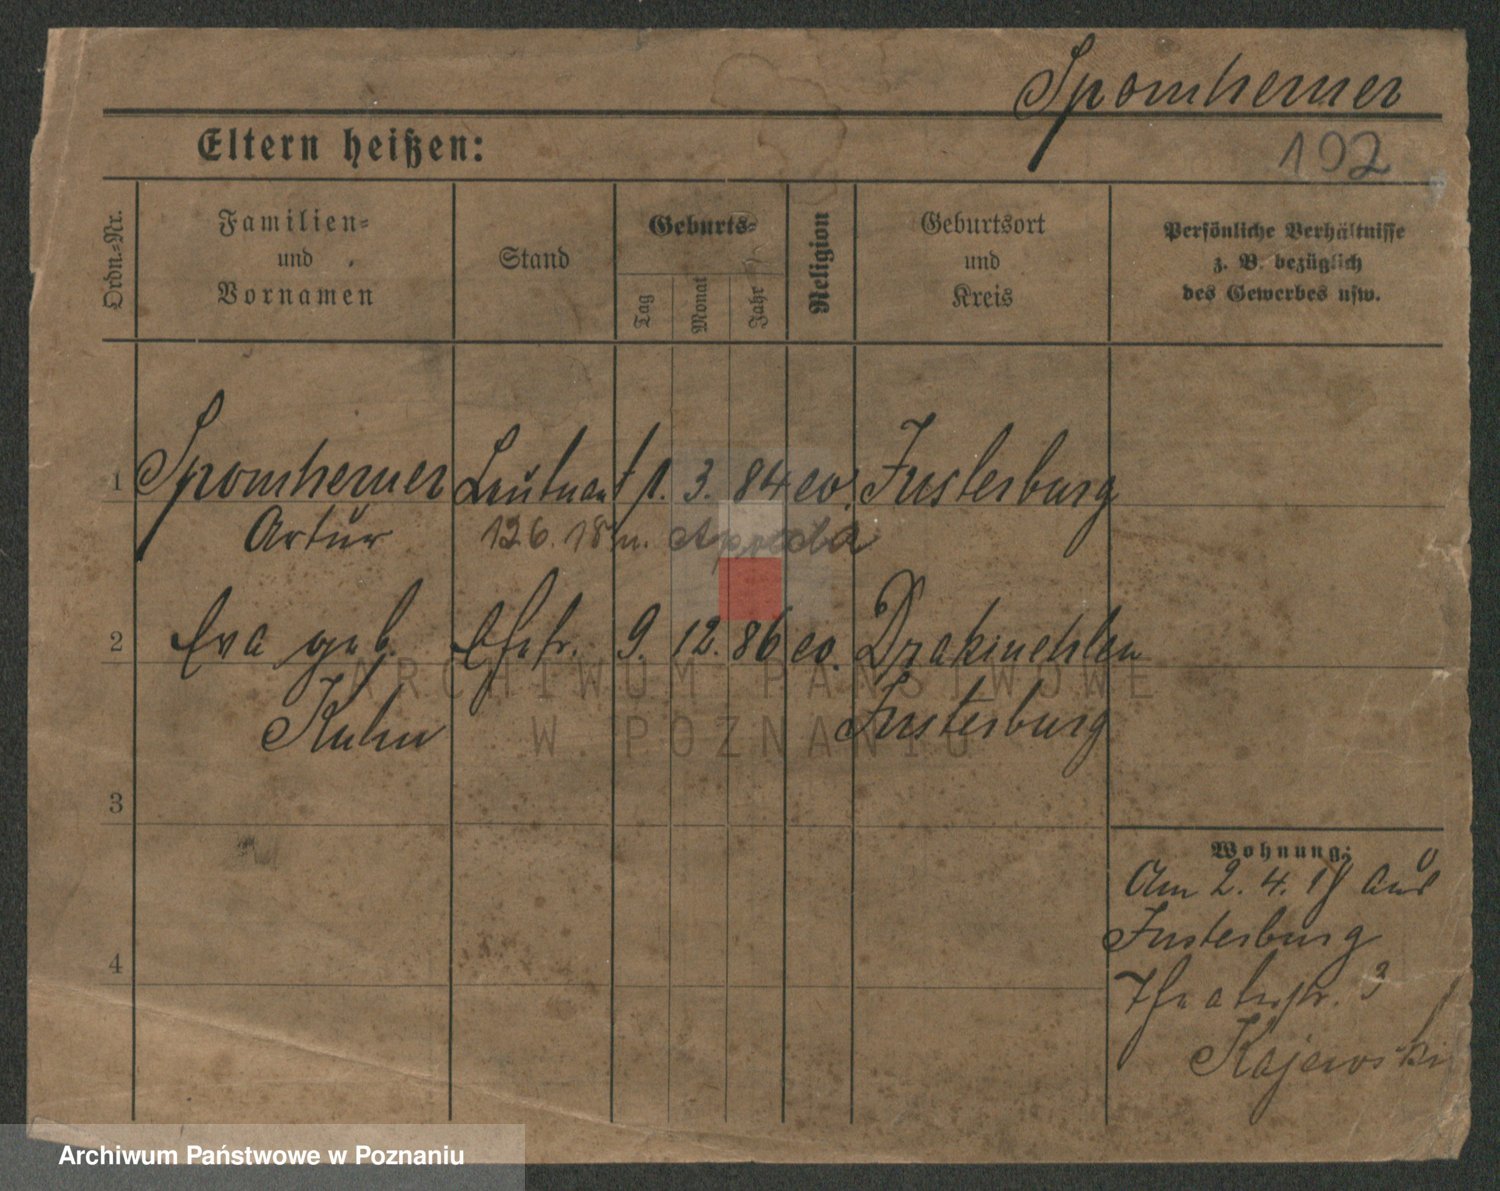 Spomhemer
192
Eltern heißen:
Ordn.-Nr.
Familien-
und
Vornamen
Stand
Geburts-
Tag
Monat
Jahr
Religion
Geburtsort
und
Kreis
Persönliche Verhältnisse
z. B. bezüglich
des Gewerbes usw.
1 Spomhemer Leutnant 1. 3. 84 ev. Insterburg
Artur 12 6. 18 n.
2 Eva geb. Ehefr. 9. 12. 86 ev.
Kuhn Insterburg
3
Wohnung:
Am 2. 4. 17 aus
Insterburg
4
Theaterstr. 3
Kajewski
ARCHIWUM PAŃSTWOWE
W POZNANIU
Archiwum Państwowe w Poznaniu